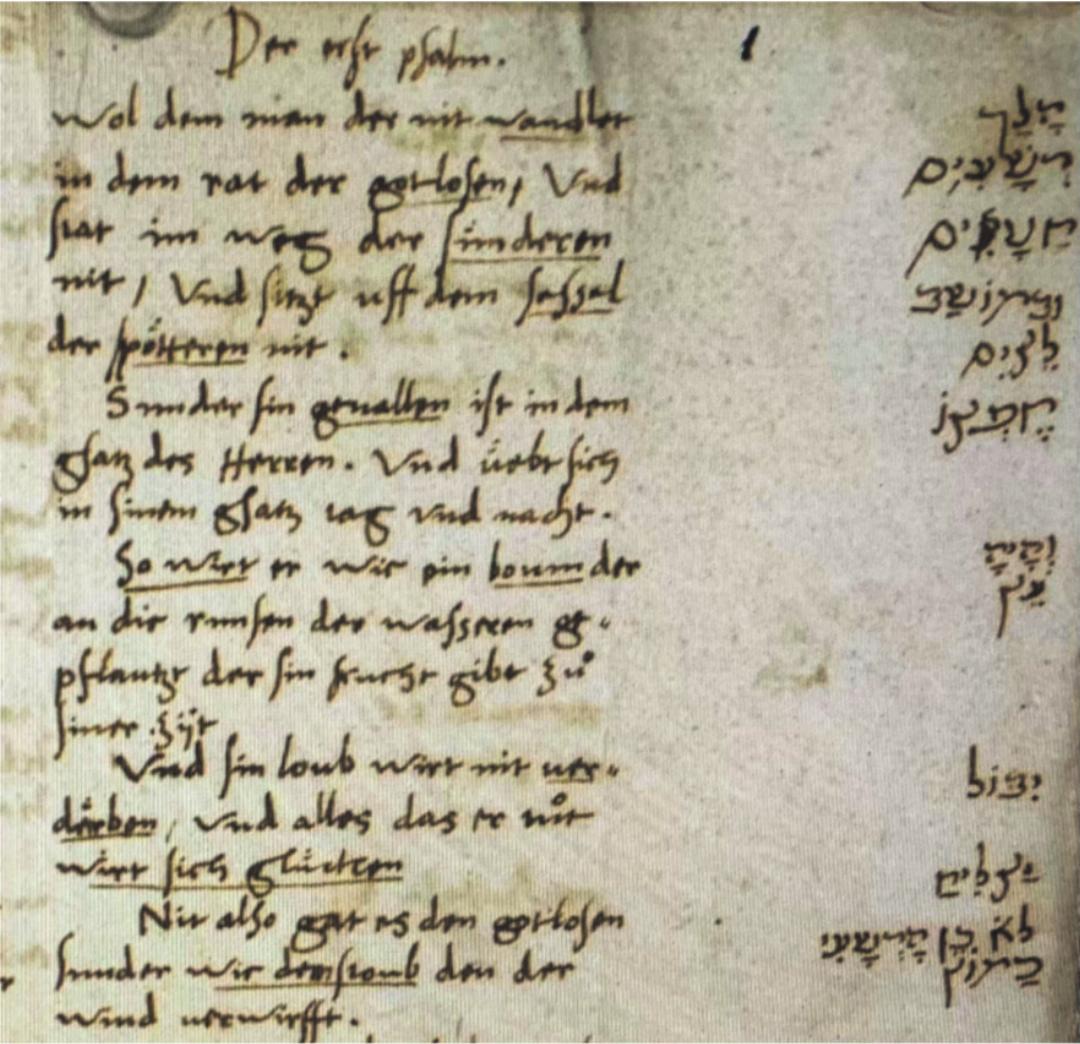 Der erst psalm.
1
Wol dem man der nit wandlet
הָלַךְ
in dem rat der gotlosen, Vnd
רְשָׁעִים
stat im weg der sünderen
חַטָּאִים
nit, Vnd sitzt uff dem sessel
der spötteren nit.
לֵצִים
Sunder sin geuallen ist in dem
חֶפְצוֹ
gsatz des Herren. Vnd üebt sich
in sinem gsatz tag vnd nacht.
So wirt er wie ein boum der
וְהָיָה
עֵץ
an die runsen der wasseren ge-
pflantzt der sin frucht gibt zuͦ
siner zÿt
Vnd sin loub wirt nit ver-
יִבּוֹל
dërben, vnd alles das er tuͦt
wirt sich glücken
יַצְלִיחַ
Nit also gat es den gotlosen
לֹא כֵן הָרְשָׁעִי
sunder wie dem stoub den der
כַּמּוֹץ
wind verwirfft.